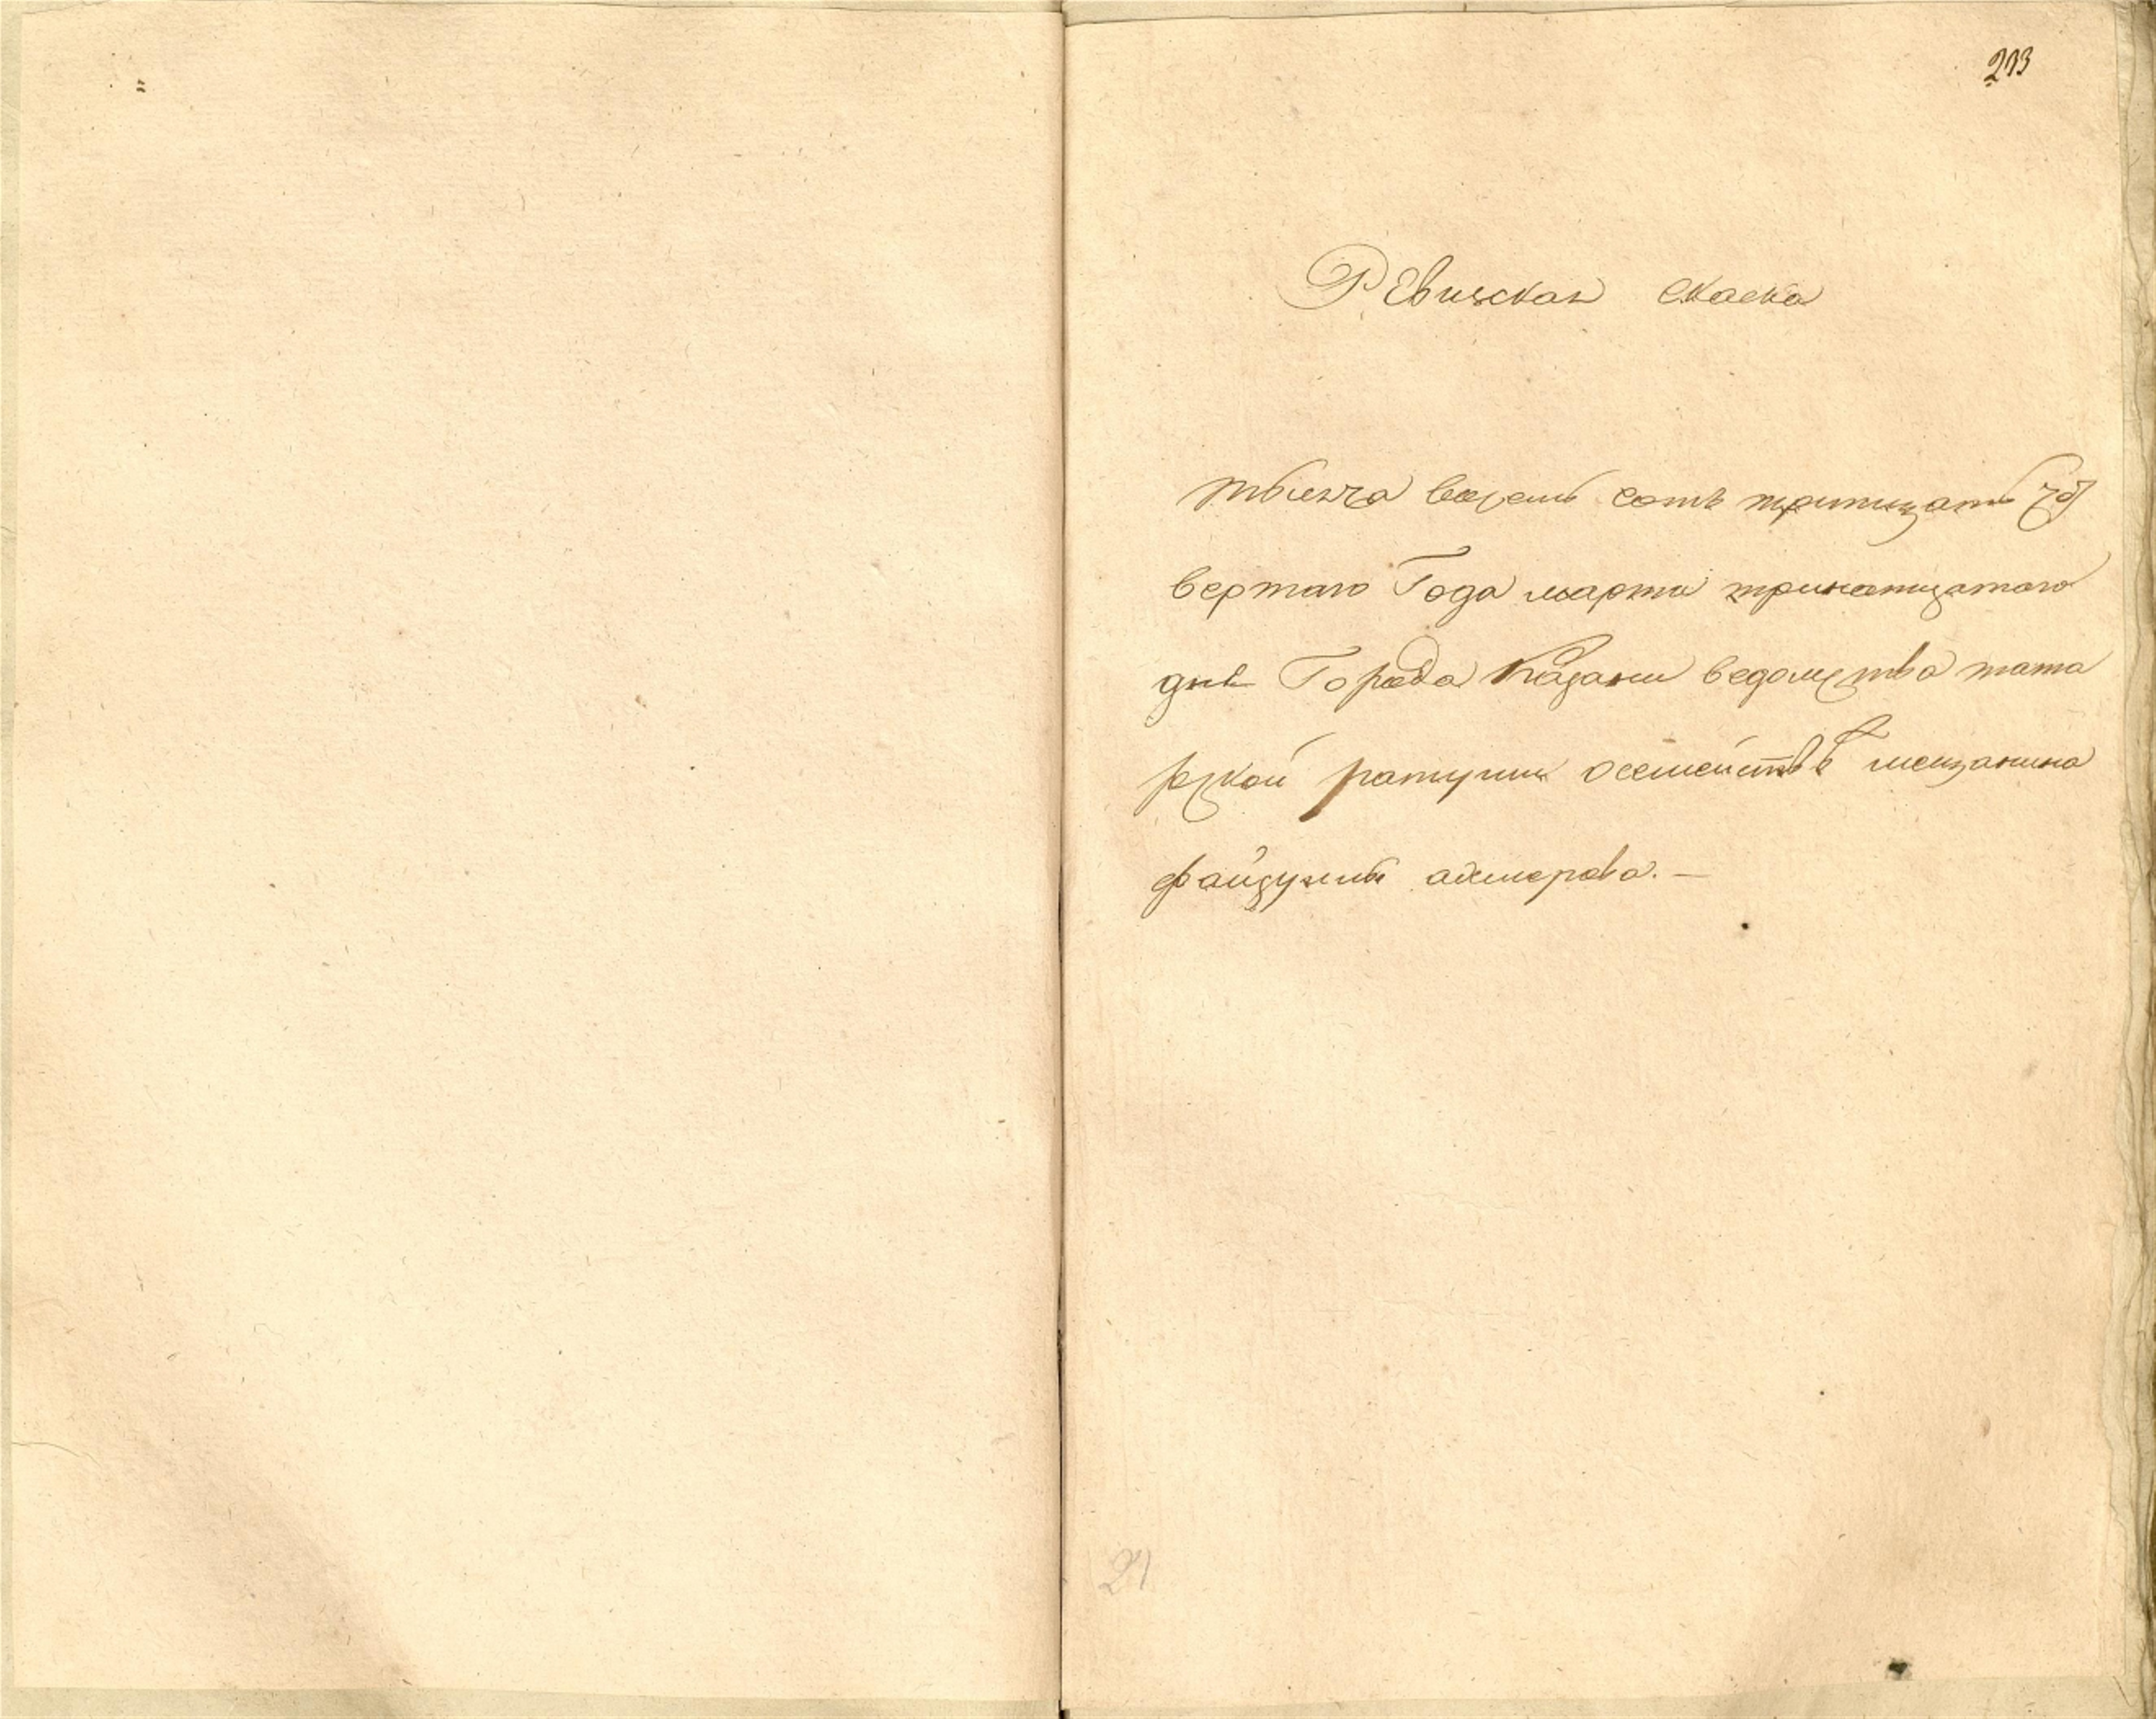 213
Ревиская скаска
тысяча восемь сотъ тритцать че
вертаго Года марта тринатцатаго
дня Города Казани ведомства тата
рской ратуши осемействе мещанина
файзуллы
21